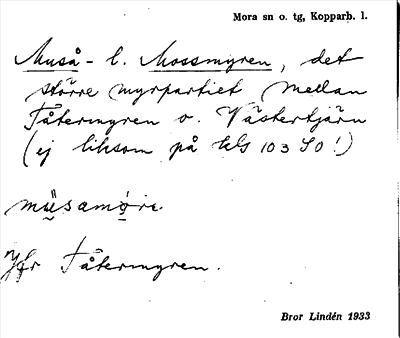 Mora sn o. tg, Kopparb. l.
Muså- l. Mossmyren, det
större myrpartiet mellan
Fåtermyren o. Västertjärn
(ej liksom på kbl 103 SO!)
Jfr Fåtermyren.
Bror Lindén 1933